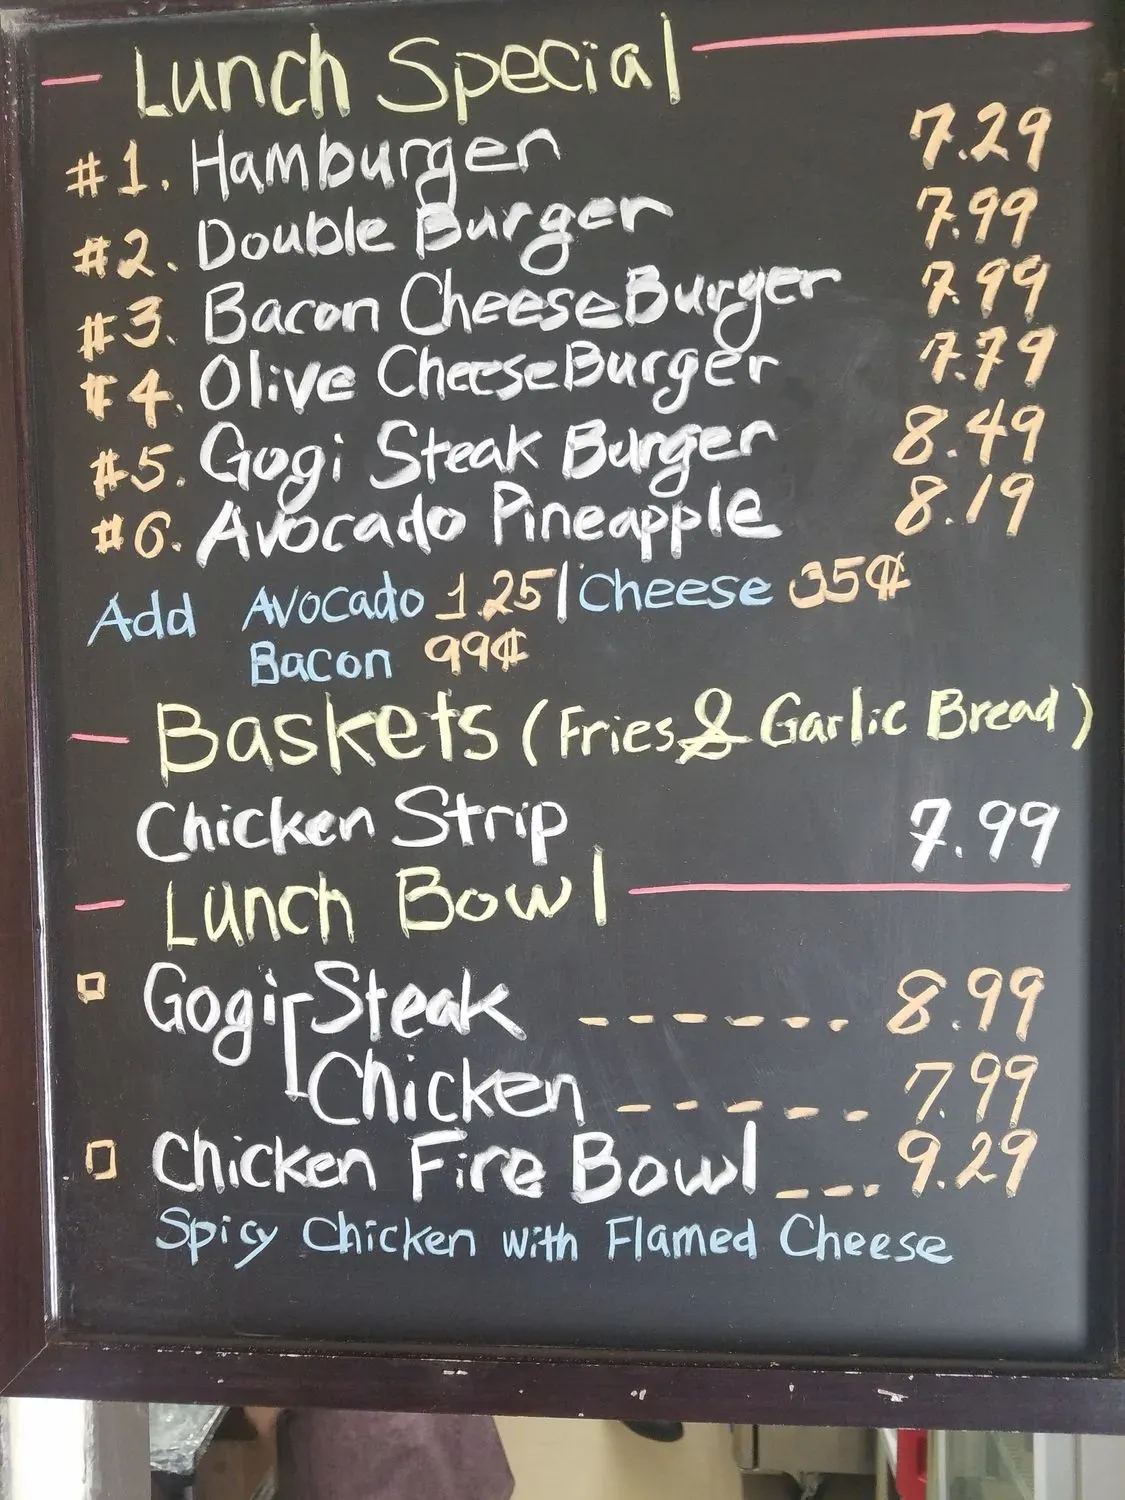 Lunch Special
#1. Hamburger 7.29
#2. Double Burger 7.99
#3. Bacon CheeseBurger 7.99
#4. Olive CheeseBurger 7.79
#5. Gogi Steak Burger 8.49
#6. Avocado Pineapple 8.19
Add Avocado 1.25 | Cheese 35¢
Bacon 99¢
Baskets (Fries & Garlic Bread)
Chicken Strip 7.99
Lunch Bowl
Gogi Steak ------ 8.99
Chicken ----- 7.99
Chicken Fire Bowl --- 9.29
Spicy Chicken with Flamed Cheese